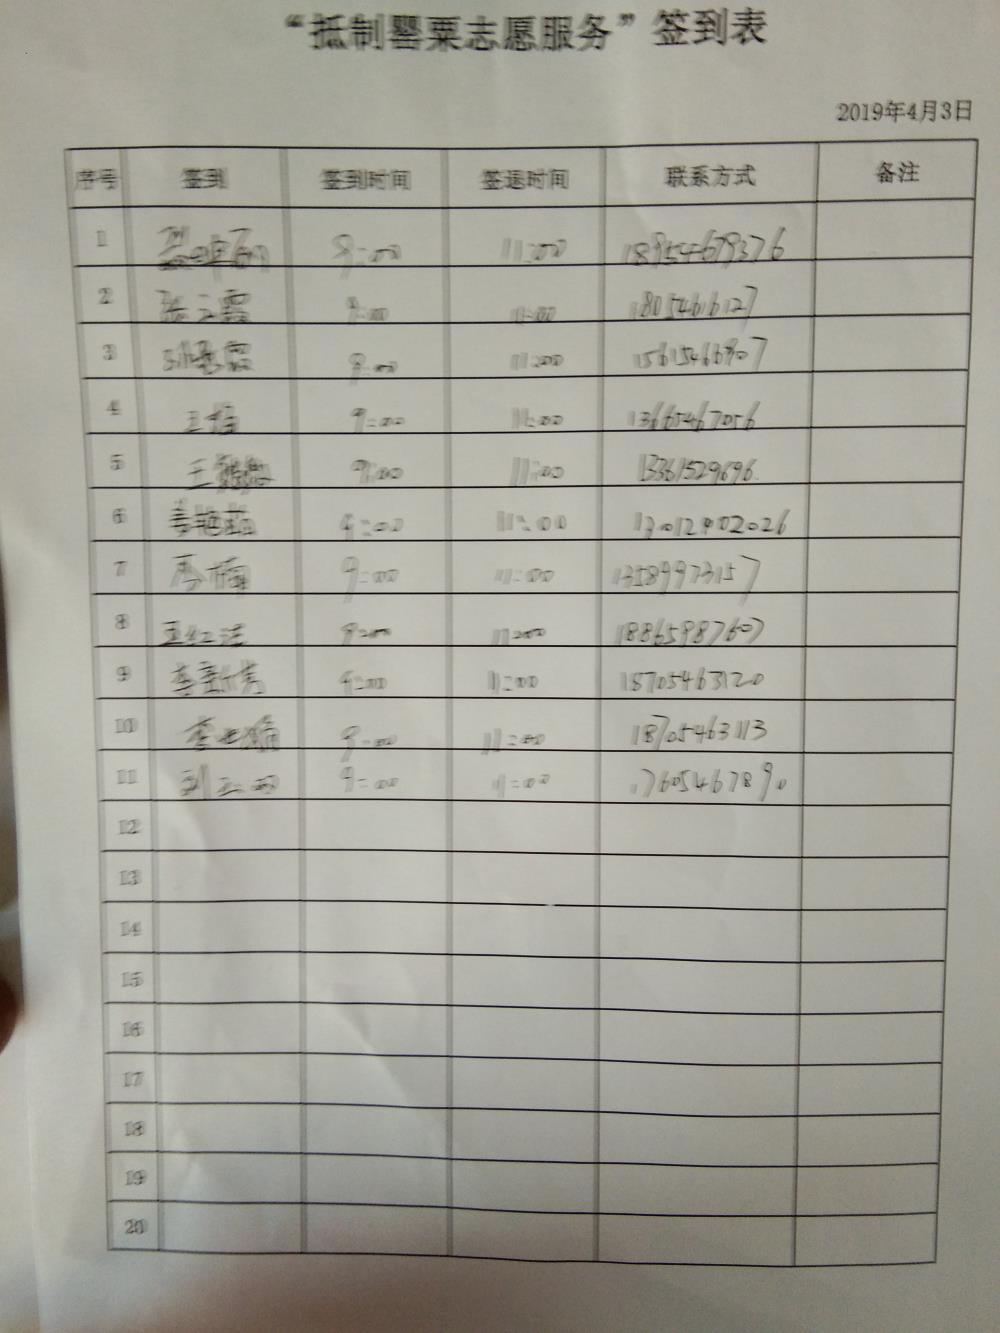 “抵制罂粟志愿服务”签到表
2019年4月3日
序号 签到 签到时间 签退时间 联系方式 备注
1 9:00 11:00 18954679376
2 张云霞 9:00 11:00 18054616127
3 9:00 11:00
4 9:00 11:00 13665467056
5 王 9:00 11:00 13361529696
6 9:00 11:00
7 9:00 11:00 13589973157
8 9:00 11:00 18865987607
9 李新秀 9:00 11:00 18705463120
10 李 9:00 11:00 18705463113
11 9:00 11:00 17605467890
12
13
14
15
16
17
18
19
20